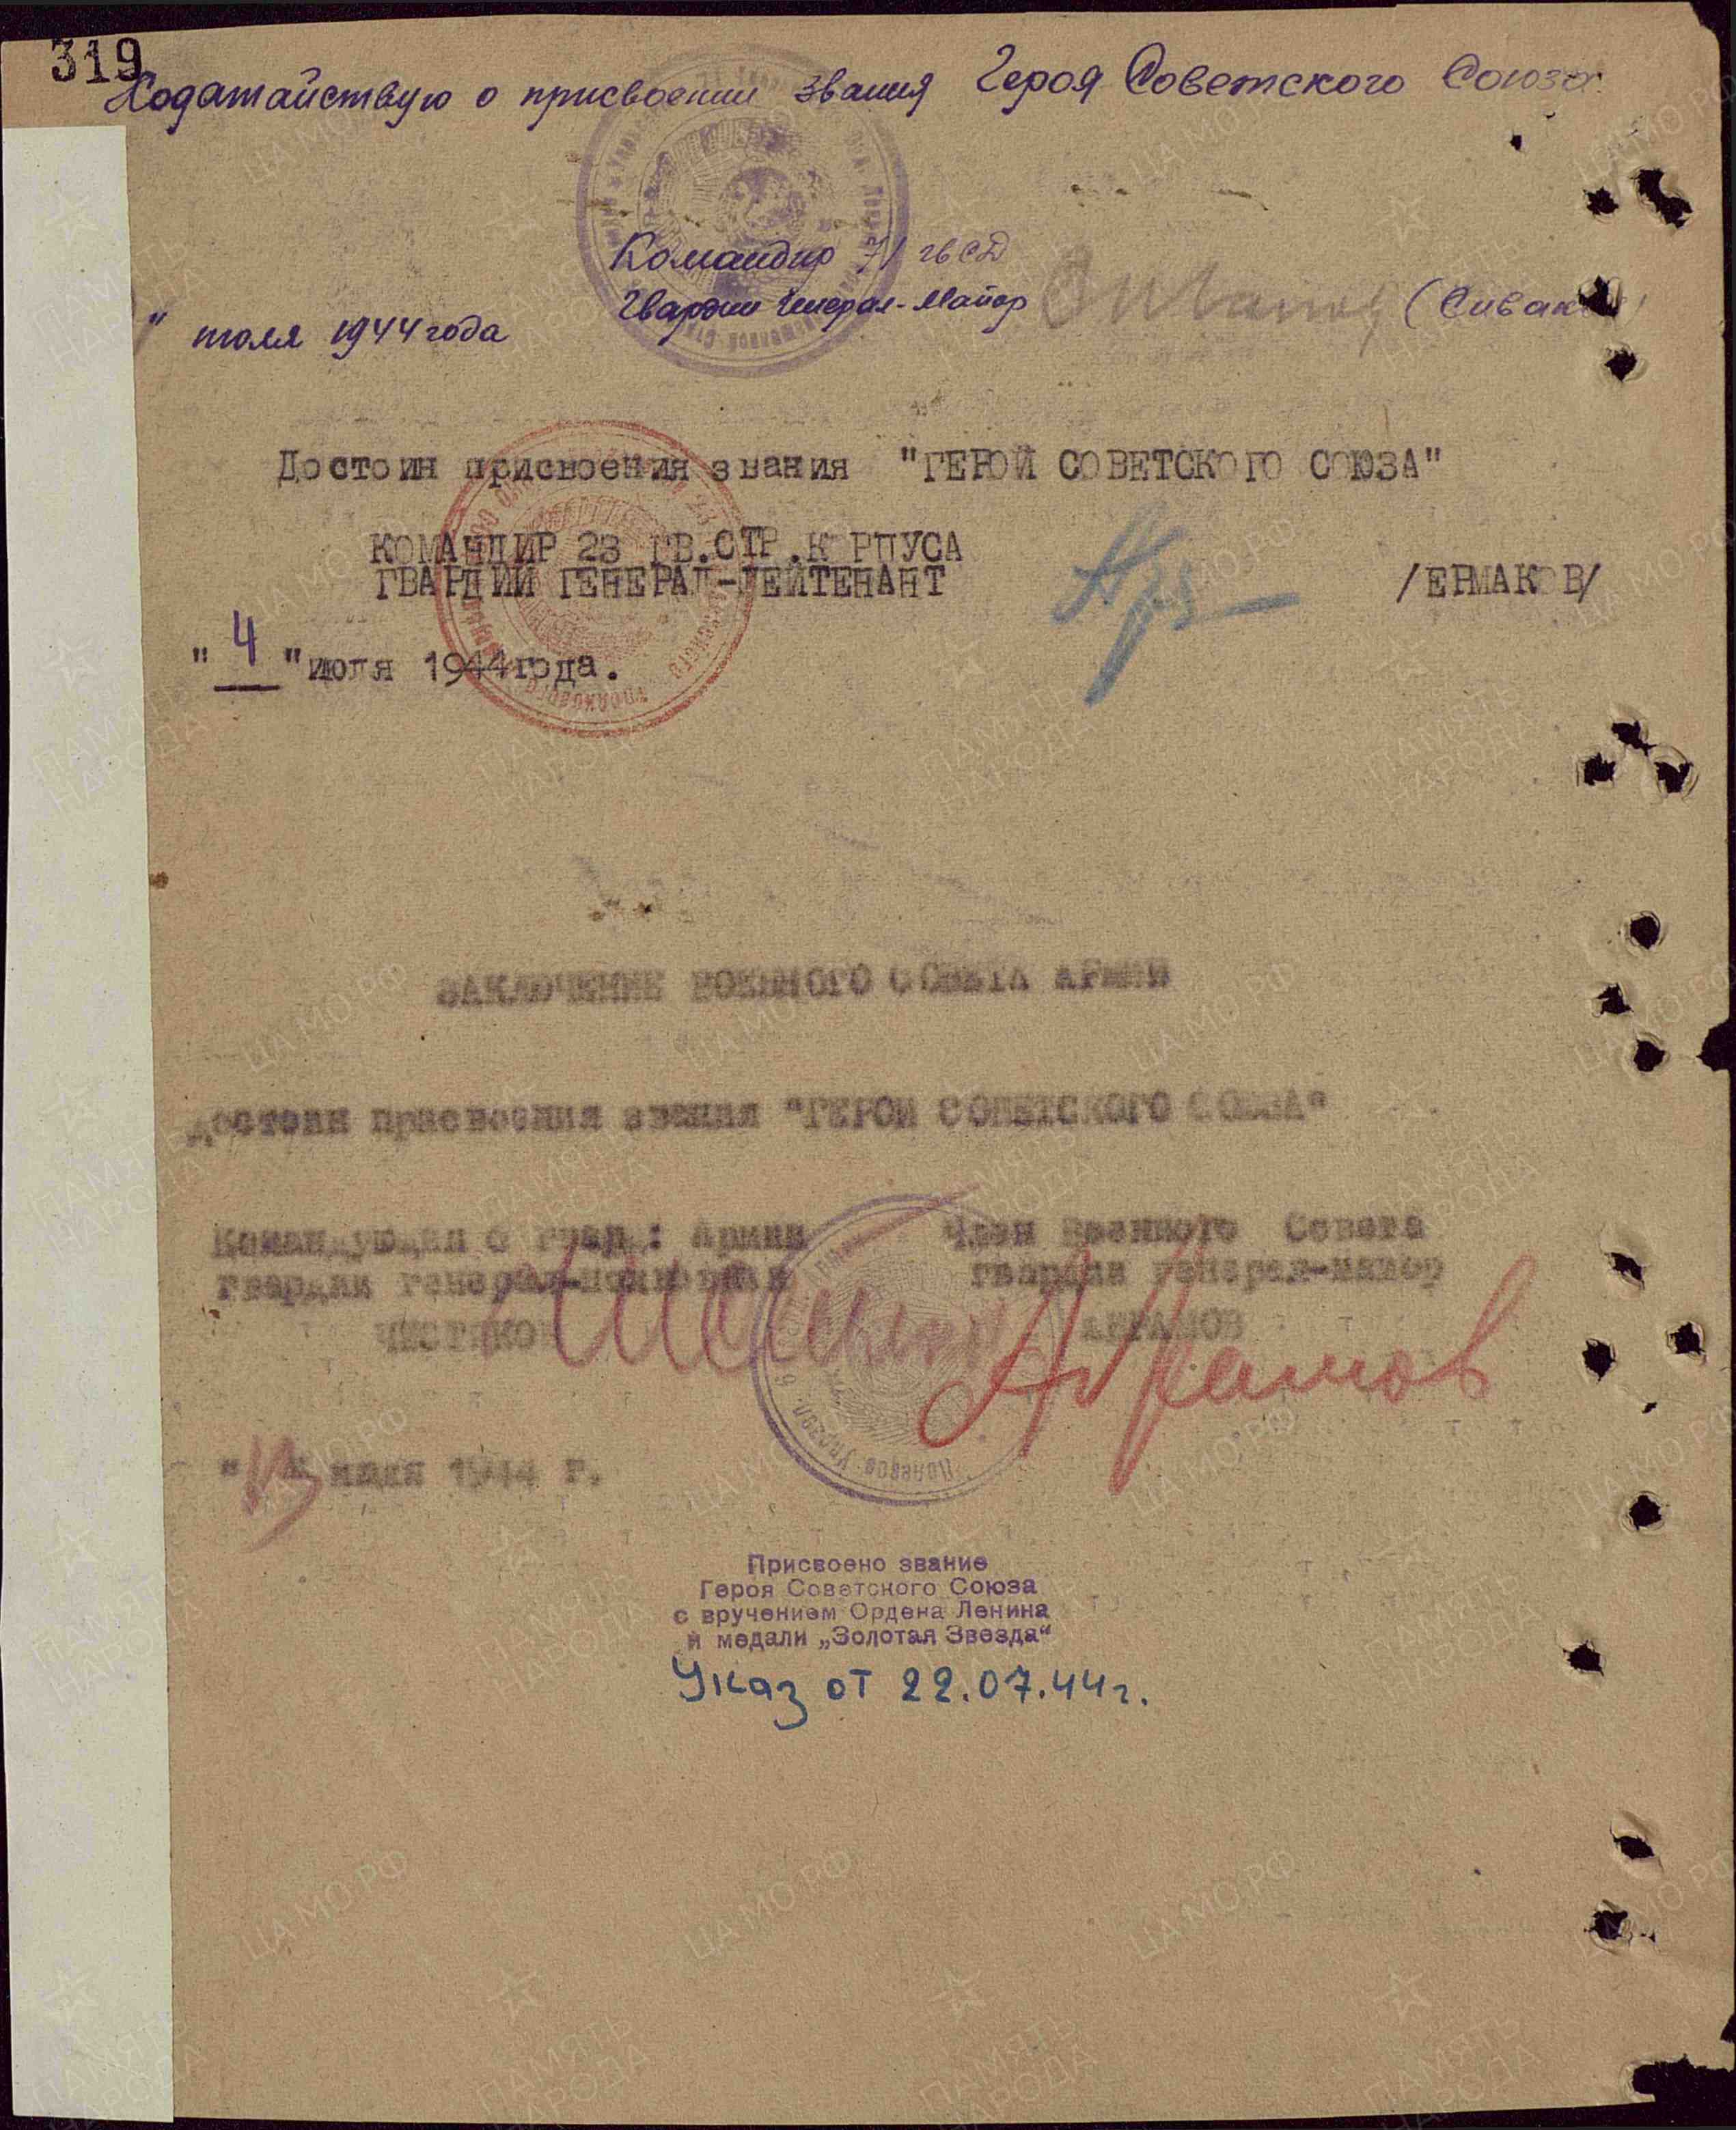 319
Ходатайствую о присвоении звания Героя Советского Союза
Командир 71 гвСД
Гвардии Генерал-Майор (Сивак
" июля 1944 года
Достоин присвоения звания "ГЕРОЙ СОВЕТСКОГО СОЮЗА"
КОМАНДИР 23 ГВ.СТР.К РПУСА
ГВАРДИИ ГЕНЕРАЛ-ЛЕЙТЕНАНТ /ЕРМАКОВ/
"4" июля 1944 года.
ЗАКЛЮЧЕНИЕ ВОЕННОГО СОВЕТА АРМИИ
Достоин присвоения звания "ГЕРОЙ СОВЕТСКОГО СОЮЗА"
Командующий 6 гвард: Армии Член Военного Совета
гвардии генерал-полковник гвардии генерал-майор
ЧИСТЯКОВ АБРАМОВ
Абрамов
"13 июля 1944 г.
Присвоено звание
Героя Советского Союза
с вручением Ордена Ленина
и медали „Золотая Звезда“
Указ от 22.07.44г.
ЦА МО РФ
ПАМЯТЬ
НАРОДА